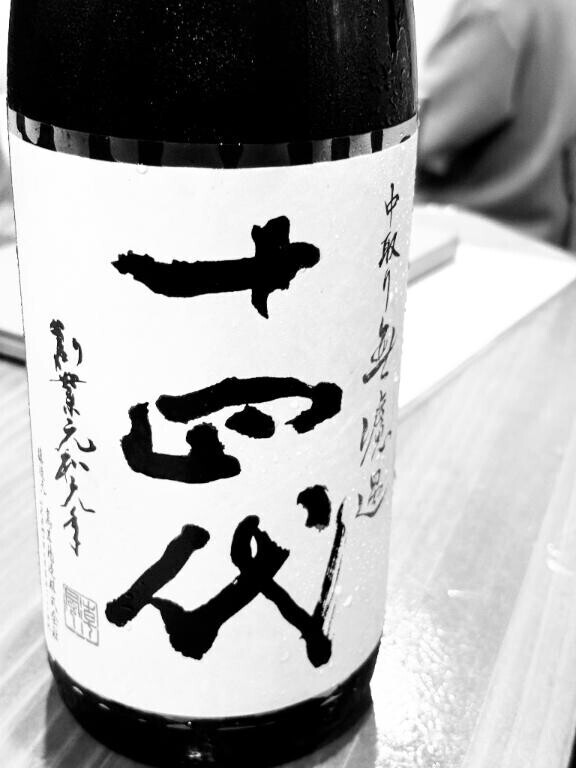 中取り無濾過
十四代
創業元和元年